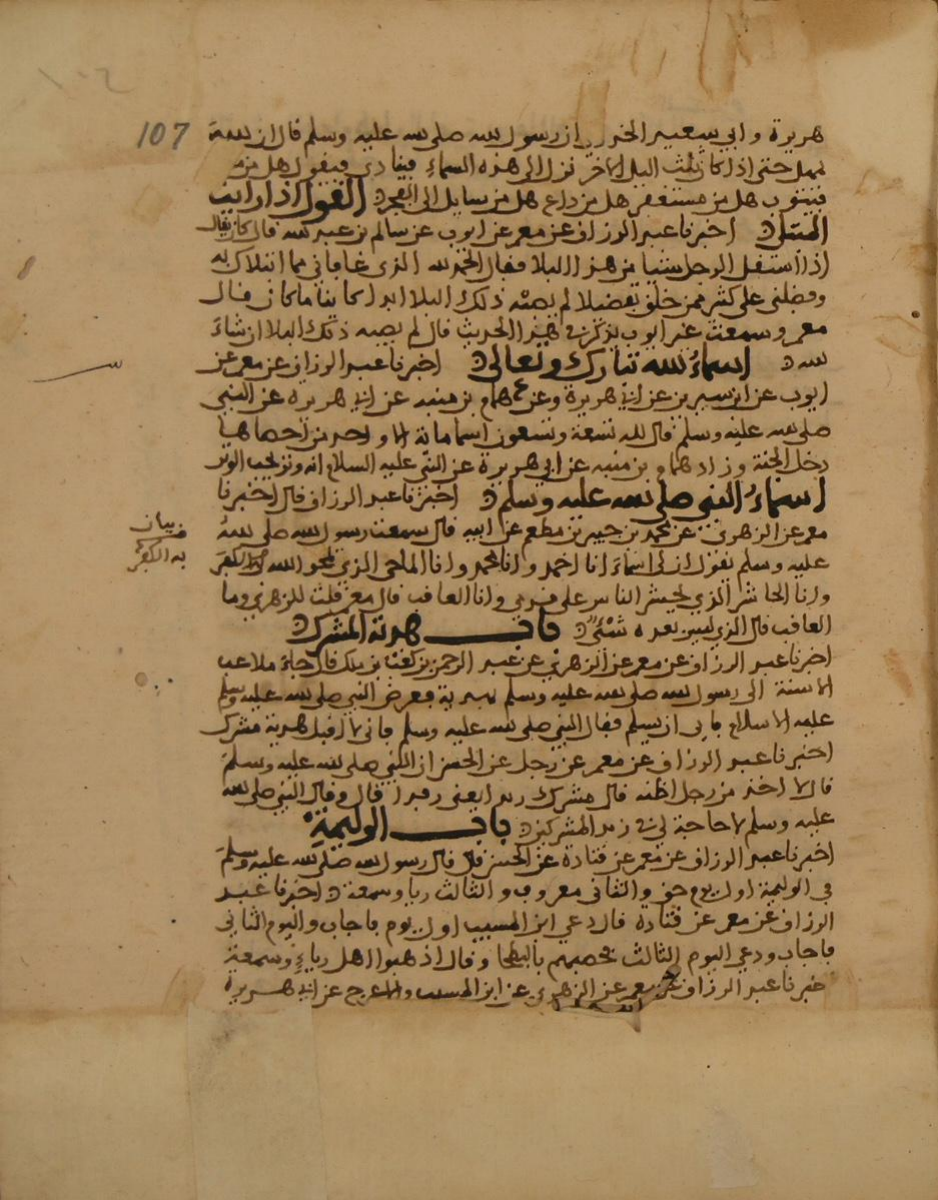 107
هريرة وابي سعيد الخدري ان رسول الله صلى الله عليه وسلم قال ان الله
يمهل حتى اذا كان ثلث اليل الاخر نزل الى هذه السماء فينادي فيقول هل من
يتوب هل من مستغفر هل من داع هل من سايل الى الفجر القول اذا رايت
المبتلى اخبرنا عبد الرزاق عن معمر عن ايوب عن سالم بن عبد الله قال كان يقال
اذا استقبل الرجل شيا من هذا البلا فقال الحمد لله الذي عافاني مما ابتلاك به
وفضلني على كثير ممن خلق تفضيلا لم يصبه ذلك البلا ابدا كاينا ما كان قال
معمر وسمعت غير ايوب يذكر في هذا الحديث قال لم يصبه ذلك البلا ان شاء
الله اسماء الله تبارك وتعالى اخبرنا عبد الرزاق عن معمر عن
ايوب عن ابن سيرين عن ابي هريرة وعن همام بن منبه عن ابي هريرة عن النبي
صلى الله عليه وسلم قال لله تسعة وتسعون اسما ماية الا واحد من احصاها
دخل الجنة وزاد همام بن منبه عن ابي هريرة عن النبي عليه السلام انه وتر يحب الوتر
اسماء النبي صلى الله عليه وسلم اخبرنا عبد الرزاق قال اخبرنا
معمر عن الزهري عن محمد بن جبير بن مطعم عن ابيه قال سمعت رسول الله صلى الله
عليه وسلم يقول ان لي اسماء انا احمد وانا محمد وانا الماحي الذي يمحو الله
به الكفر
وانا الحاشر الذي يحشر الناس على قدمي وانا العاقب قال معمر قلت للزهري وما
العاقب قال الذي ليس بعده نبي باب هدية المشرك
اخبرنا عبد الرزاق عن معمر عن الزهري عن عبد الرحمن بن كعب بن ملك قال جاء ملاعب
الاسنة الى رسول الله صلى الله عليه وسلم بهدية فعرض النبي صلى الله عليه وسلم
عليه الاسلام فابى ان يسلم فقال النبي صلى الله عليه وسلم فاني لا اقبل هدية مشرك
اخبرنا عبد الرزاق عن معمر عن رجل عن الحسن ان النبي صلى الله عليه وسلم
قال لا اخذ من رجل اظنه قال مشرك زبدا يعني رفدا قال وقال النبي صلى الله
عليه وسلم لا حاجة لي في زبد المشركين باب الوليمة
اخبرنا عبد الرزاق عن معمر عن قتادة عن الحسن قال قال رسول الله صلى الله عليه وسلم
في الوليمة اول يوم حق والثاني معروف والثالث ريا وسمعة اخبرنا عبد
الرزاق عن معمر عن قتادة قال دعي ابن المسيب اول يوم فاجاب واليوم الثاني
فاجاب ودعي اليوم الثالث فحصبهم بالبطحا وقال اذهبوا اهل رياء وسمعة
اخبرنا عبد الرزاق عن معمر عن الزهري عن ابن المسيب والاعرج عن ابي هريرة